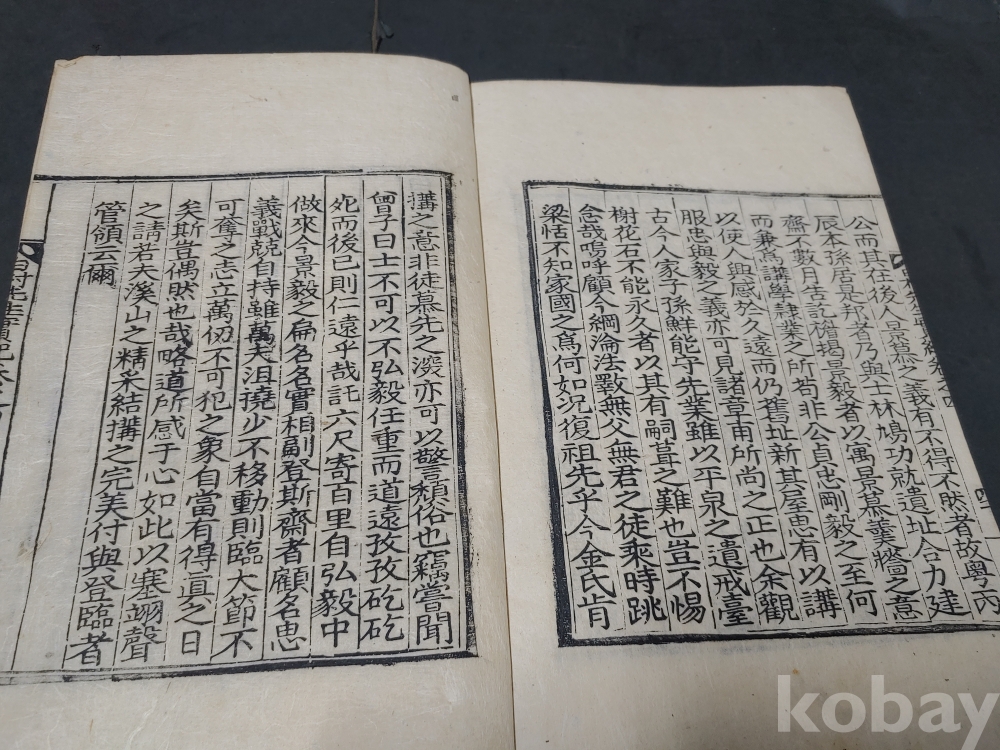 公而其在後人景慕之義有不得不然者故粤丙
辰本孫居是邦者乃與士林鳩功就遺址合力建
齋不數月告訖楣揭景毅者以寓景慕羹墻之意
而兼爲講學隷業之所苟非公貞忠剛毅之至何
以使人興感於久遠而仍舊址新其屋思有以講
服忠與毅之義亦可見諸章甫所尚之正也余觀
古今人家子孫鮮能守先業雖以平泉之遺戒臺
榭花石不能永久者以其有嗣葺之難也豈不惕
念哉嗚呼顧今綱淪法斁無父無君之徒乘時跳
梁恬不知家國之爲何如況復祖先乎今金氏肯
搆之意非徒慕先之深亦可以警頹俗也竊嘗聞
曾子曰士不可以不弘毅任重而道遠孜孜矻矻
死而後已則仁遠乎哉託六尺寄百里自弘毅中
做來今景毅之扁名名實相副登斯齋者顧名思
義戰兢自持雖萬夫沮撓少不移動則臨大節不
可奪之志立萬仞不可犯之象自當有得一直之日
矣斯豈偶然也哉略道所感于心如此以塞翊聲
之請若夫溪山之精采結搆之完美付與登臨者
管領云爾
kobay